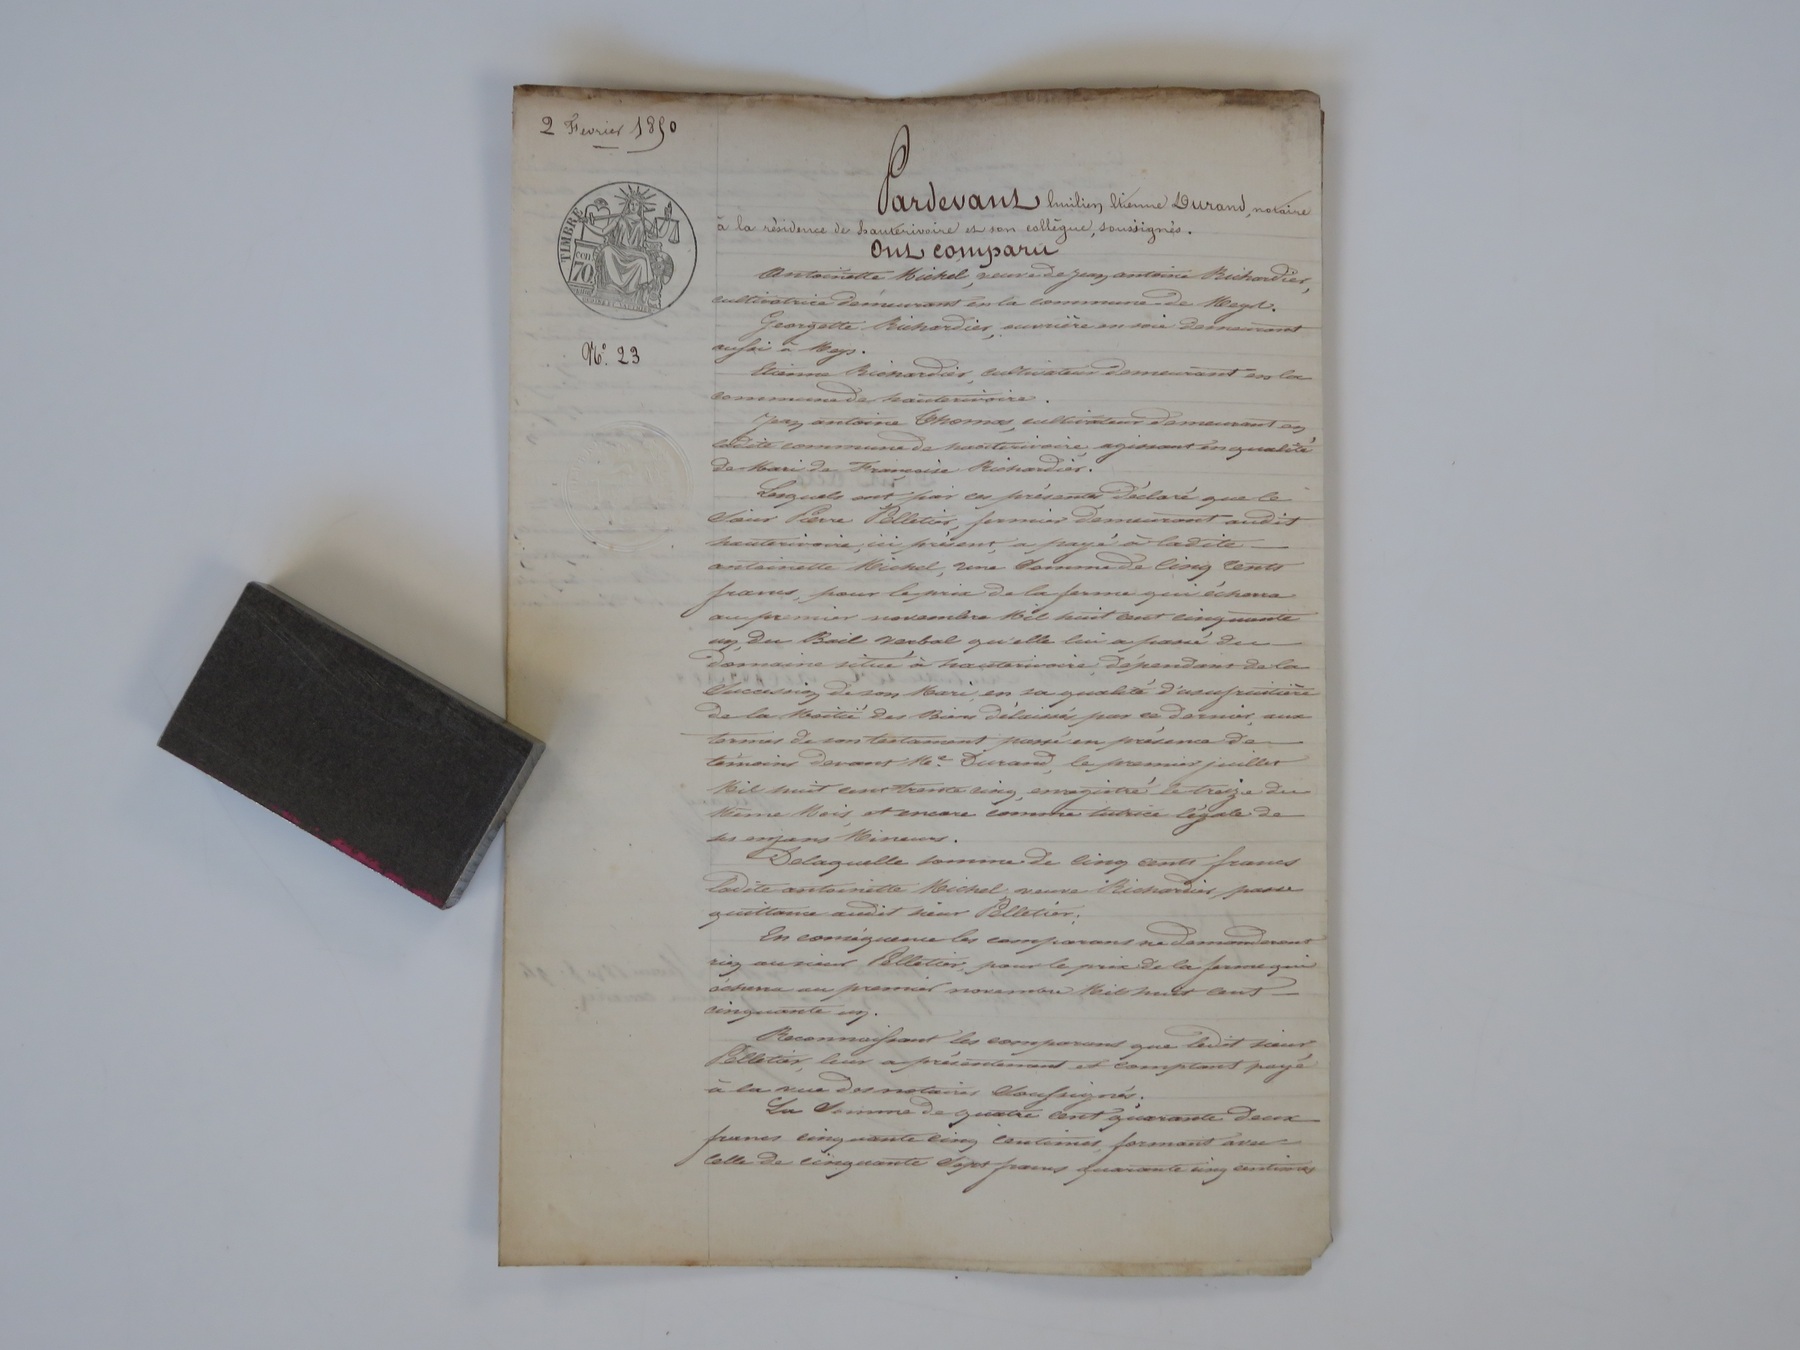 2 Fevrier 1850
TIMBRE
cen
70.
N.° 23
Pardevant Emilien Etienne Durand, notaire
à la résidence de hauterivoire et son collègue, soussignés.
Ont comparu
Antoinette Michel, veuve de jean antoine Richardier,
cultivatrice demeurant en la commune de Meys.
Georgette Richardier, ouvrière en soie demeurant
aussi à Meys.
Etienne Richardier, cultivateur demeurant en la
commune de hauterivoire.
jean antoine Thomas, cultivateur demeurant en
ladite commune de hauterivoire, agissant en qualité
de Mari de Françoise Richardier.
Lesquels ont par ces présentes déclaré que le
Sieur Pierre Pelletier, fermier demeurant audit
hauterivoire, ici présent, a payé à ladite
antoinette Michel, une Somme de Cinq Cents
francs, pour le prix de la ferme qui échorra
au premier novembre Mil huit cent cinquante
un, du Bail verbal qu'elle lui a passé du
domaine situé à hauterivoire, dépendant de la
Succession de son Mari, en sa qualité d'usufruitière
de la Moitié des Biens délaissés par ce dernier, aux
termes de son testament passé en présence de
témoins devant M.e Durand, le premier juillet
Mil huit cent trente cinq, enregistré le treize du
Même Mois, et encore comme tutrice légale de
ses enfans Mineurs.
Delaquelle somme de Cinq cents francs
ladite antoinette Michel veuve Richardier, passe
quittance audit sieur Pelletier.
En conséquence les comparans ne demanderont
rien au sieur Pelletier, pour le prix de la ferme qui
échorra au premier novembre Mil huit cent
cinquante un.
Reconnaissant les comparans que ledit sieur
Pelletier, leur a présentement et comptant payé
à la vue des notaires Soussignés.
La Somme de quatre cent quarante deux
francs cinquante cinq Centimes, formant avec
Celle de Cinquante Sept francs quarante cinq centimes